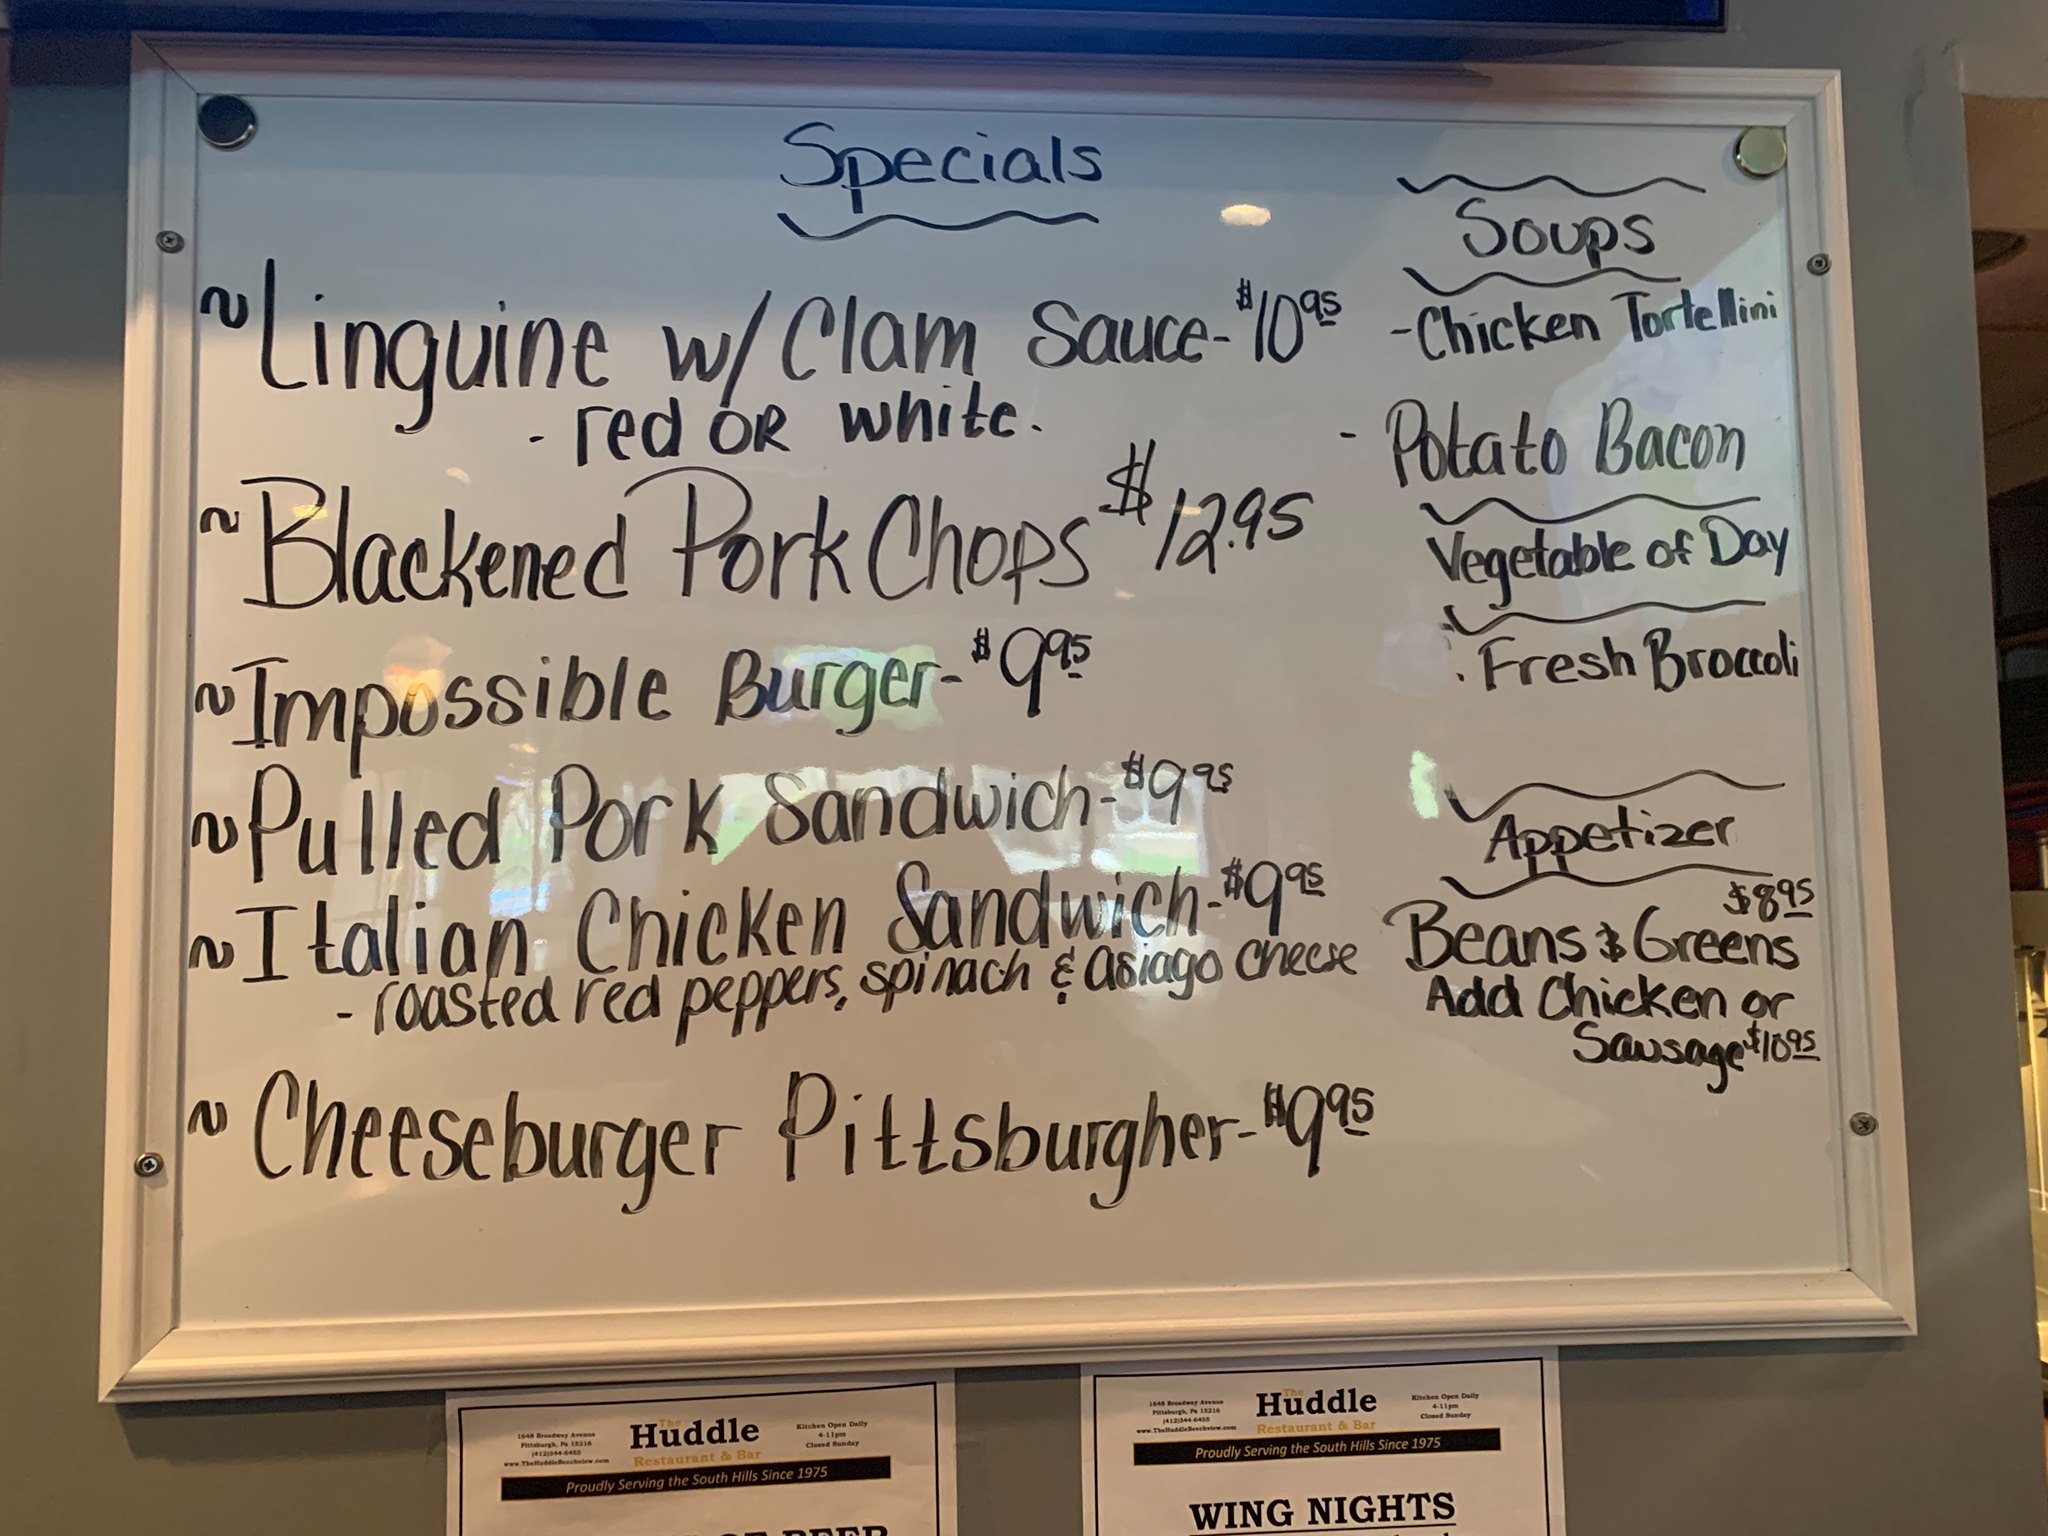 Specials
~ Linguine w/ Clam Sauce - $10.95
- red OR white.
~ Blackened Pork Chops $12.95
~ Impossible Burger - $9.95
~ Pulled Pork Sandwich - $9.95
~ Italian Chicken Sandwich - $9.95
- roasted red peppers, spinach & asiago cheese
~ Cheeseburger Pittsburgher - $9.95
Soups
- Chicken Tortellini
- Potato Bacon
Vegetable of Day
. Fresh Broccoli
Appetizer
$8.95
Beans & Greens
Add Chicken or
Sausage $10.95
1648 Broadway Avenue
Pittsburgh, Pa 15216
(412)344-6455
www.TheHuddleBeechview.com
The
Huddle
Restaurant & Bar
Kitchen Open Daily
4-11pm
Closed Sunday
Proudly Serving the South Hills Since 1975
BEER
1648 Broadway Avenue
Pittsburgh, Pa 15216
(412)344-6455
www.TheHuddleBeechview.com
The
Huddle
Restaurant & Bar
Kitchen Open Daily
4-11pm
Closed Sunday
Proudly Serving the South Hills Since 1975
WING NIGHTS